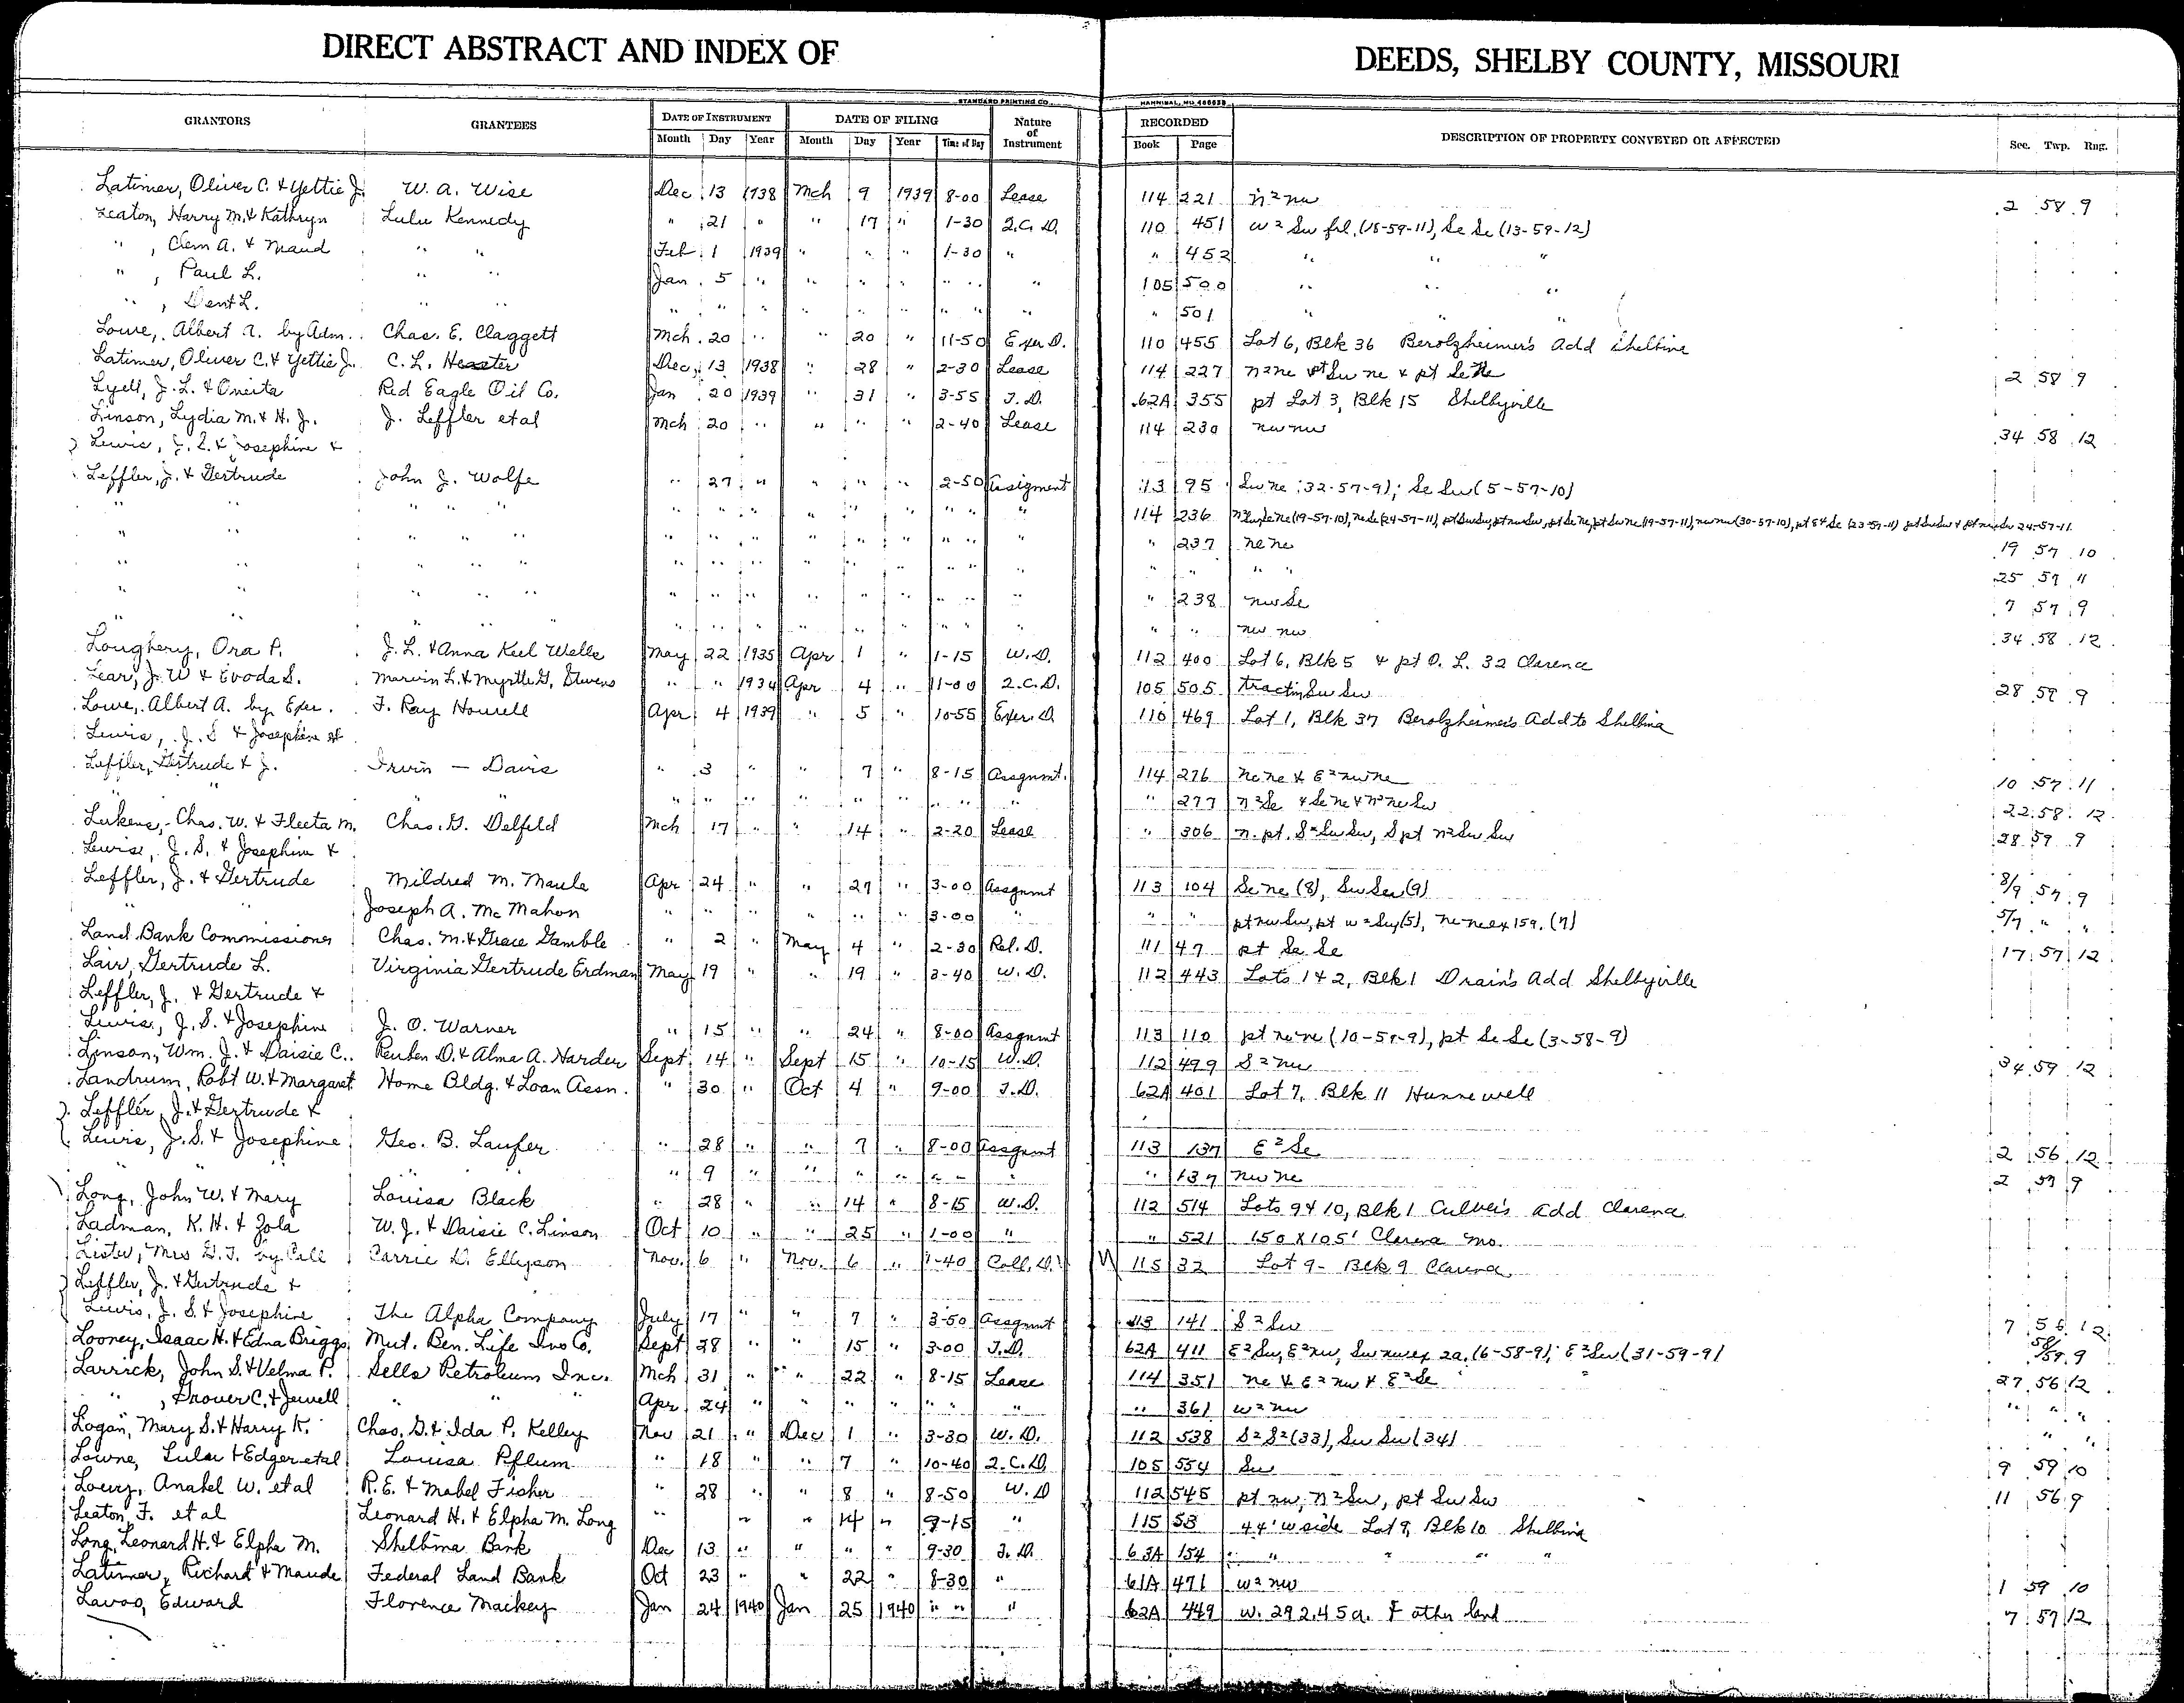 DIRECT ABSTRACT AND INDEX OF DEEDS, SHELBY COUNTY, MISSOURI
STANDARD PRINTING CO. HANNIBAL, MO.
GRANTORS GRANTEES DATE OF INSTRUMENT DATE OF FILING Nature of Instrument RECORDED DESCRIPTION OF PROPERTY CONVEYED OR AFFECTED Sec. Twp. Rng.
Month Day Year Month Day Year Time of Day Book Page
Latimer, Oliver C. & Yettie J. W. A. Wise Dec 13 1938 Mch 9 1939 8-00 Lease 114 221 N2 nw 2 58 9
Leaton, Harry M. & Kathryn Lulu Kennedy " 21 " " 17 " 1-30 Q.C.D. 110 451 W2 Sw frl. (18-59-11), Se Se (13-59-12)
" , Clem A. & Maud " " Feb 1 1939 " " " 1-30 " " 452 " " "
" , Paul L. " " Jan 5 " " " " " " " 105 500 " " "
" , Dent L. " " " " " " " " " " " " 501 " " "
Lowe, Albert A. by Adm. Chas. E. Claggett Mch 20 " " 20 " 11-50 Exer D. 110 455 Lot 6, Blk 36 Berolzheimer's Add Shelbina
Latimer, Oliver C. & Yettie J. C. L. Hester Dec 13 1938 " 28 " 2-30 Lease 114 227 N2 ne pt Sw ne & pt Se Ne 2 58 9
Lyell, J. L. & Oneita Red Eagle Oil Co. Jan 20 1939 " 31 " 3-55 T.D. 62A 355 pt Lot 3, Blk 15 Shelbyville
Linson, Lydia M. & H. J. J. Leffler et al Mch 20 " " " " 2-40 Lease 114 230 nw nw 34 58 12
Lewis, J. S. & Josephine &
Leffler, J. & Gertrude John J. Wolfe " 27 " " " " 2-50 Assigment 113 95 Sw ne (32-57-9); Se Sw (5-57-10)
" " " " " " " " " " " " " 114 236
" " " " " " " " " " " " " " 237 ne ne 19 57 10
" " " " " " " " " " " " " " " " " 25 57 11
" " " " " " " " " " " " " " 238 nw Se 7 57 9
" " " " " " " " " " " " nw nw 34 58 12
Loughery, Ora P. J. L. & Anna Keel Welle May 22 1935 Apr 1 " 1-15 W.D. 112 400 Lot 6, Blk 5 & pt O. L. 32 Clarence
Lear, J. W & Evoda S. Marvin L. & Myrtle G. Stevens " " 1934 Apr 4 " 11-00 Q.C.D. 105 505 tract in Sw Sw 28 59 9
Lowe, Albert A. by Exer. F. Ray Howell Apr 4 1939 " 5 " 10-55 Exer. D 110 469 Lot 1, Blk 37 Berolzheimer's Add to Shelbina
Lewis, J. S & Josephine &
Leffler, Gertrude & J. Irvin — Davis " 3 " " 7 " 8-15 Assgnmt. 114 276 ne ne & E2 nw ne 10 57 11
" " " " " " " " " " " " 277 N2 Se & Se ne & N2 ne Sw 22 58 12
Lukens, Chas. W. & Fleeta M. Chas. G. Delfeld Mch 17 " " 14 " 2-20 Lease " 306 n. pt. S2 Sw Sw, S pt N2 Sw Sw 28 59 9
Lewis, J. S. & Josephine &
Leffler, J. & Gertrude Mildred M. Maule Apr 24 " " 27 " 3-00 Assgnmt 113 104 Se ne (8), Sw Sw (9) 8/9 57 9
" " Joseph A. McMahon " " " " " " 3-00 " " " pt nw Sw, pt W2 Sw (5), ne ne ex 15a. (7) 5/7 " "
Land Bank Commissioner Chas. M. & Grace Gamble " 2 " May 4 " 2-30 Rel. D. 111 49 pt Se Se 17 57 12
Lair, Gertrude L. Virginia Gertrude Erdman May 19 " " 19 " 3-40 W.D. 112 443 Lots 1 & 2, Blk 1 Drain's Add Shelbyville
Leffler, J. & Gertrude &
Lewis, J. S. & Josephine J. O. Warner " 15 " " 24 " 8-00 Assgnmt 113 110 pt ne ne (10-57-9), pt Se Se (3-58-9)
Linson, Wm. J. & Daisie C. Reuben D. & Alma A. Harder Sept 14 " Sept 15 " 10-15 W.D. 112 499 S2 nw 34 59 12
Landrum, Robt W. & Margaret Home Bldg. & Loan Assn. " 30 " Oct 4 " 9-00 T.D. 62A 401 Lot 7, Blk 11 Hunnewell
Leffler, J. & Gertrude &
Lewis, J. S. & Josephine Geo. B. Laufer " 28 " " 7 " 8-00 Assgnmt 113 137 E2 Se 2 56 12
" " " 9 " " " " " " " " 139 nw ne 2 57 9
Long, John W. & Mary Louisa Black " 28 " 14 " 8-15 W.D. 112 514 Lots 9 & 10, Blk 1 Culver's Add Clarence
Ladman, K. H. & Zola W. J. & Daisie C. Linson Oct 10 " " 25 " 1-00 " " 521 150 X 105' Clarence Mo.
Lister, Mrs G. T. by Coll Carrie D. Ellyson Nov. 6 " Nov. 6 " 1-40 Coll. D. 115 32 Lot 9 - Blk 9 Clarence
Leffler, J. & Gertrude &
Lewis, J. S. & Josephine The Alpha Company July 17 " " 7 " 3-50 Assgnmt 113 141 S2 Sw 7 56 12
Looney, Isaac H. & Edna Briggs Mut. Ben. Life Ins Co. Sept 28 " " 15 " 3-00 T.D. 62A 411 E2 Sw, E2 nw, Sw nw ex 2a. (6-58-9); E2 Sw (31-59-9) 58/59 9
Larrick, John S. & Velma P. Sells Petroleum Inc. Mch 31 " " 22 " 8-15 Lease 114 351 ne & E2 nw & E2 Se 27 56 12
" , Grover C. & Jewell " " Apr 24 " " " " " " " " 361 W2 nw " " "
Logan, Mary S. & Harry K. Chas. G. & Ida P. Kelley Nov 21 " Dec 1 " 3-30 W.D. 112 538 S2 S2 (33), Sw Sw (34) " "
Lowne, Lula & Edger et al Louisa Pflum " 18 " " 7 " 10-40 Q.C.D. 105 554 Sw 9 59 10
Lowry, Anabel W. et al R. E. & Mabel Fisher " 28 " " 8 " 8-50 W.D 112 545 pt nw, N2 Sw, pt Sw Sw 11 56 9
Leaton, F. et al Leonard H. & Elpha M. Long " " " 14 " 9-15 " 115 53 44' W side Lot 9, Blk 10 Shelbina
Long, Leonard H. & Elpha M. Shelbina Bank Dec 13 " " " " 9-30 T.D. 63A 154 " " " " "
Latimer, Richard & Maude Federal Land Bank Oct 23 " " 22 " 8-30 " 61A 471 W2 nw 1 59 10
Lavoo, Edward Florence Mackey Jan 24 1940 Jan 25 1940 " " " 62A 449 W. 292.45 a. & other land 7 57 12